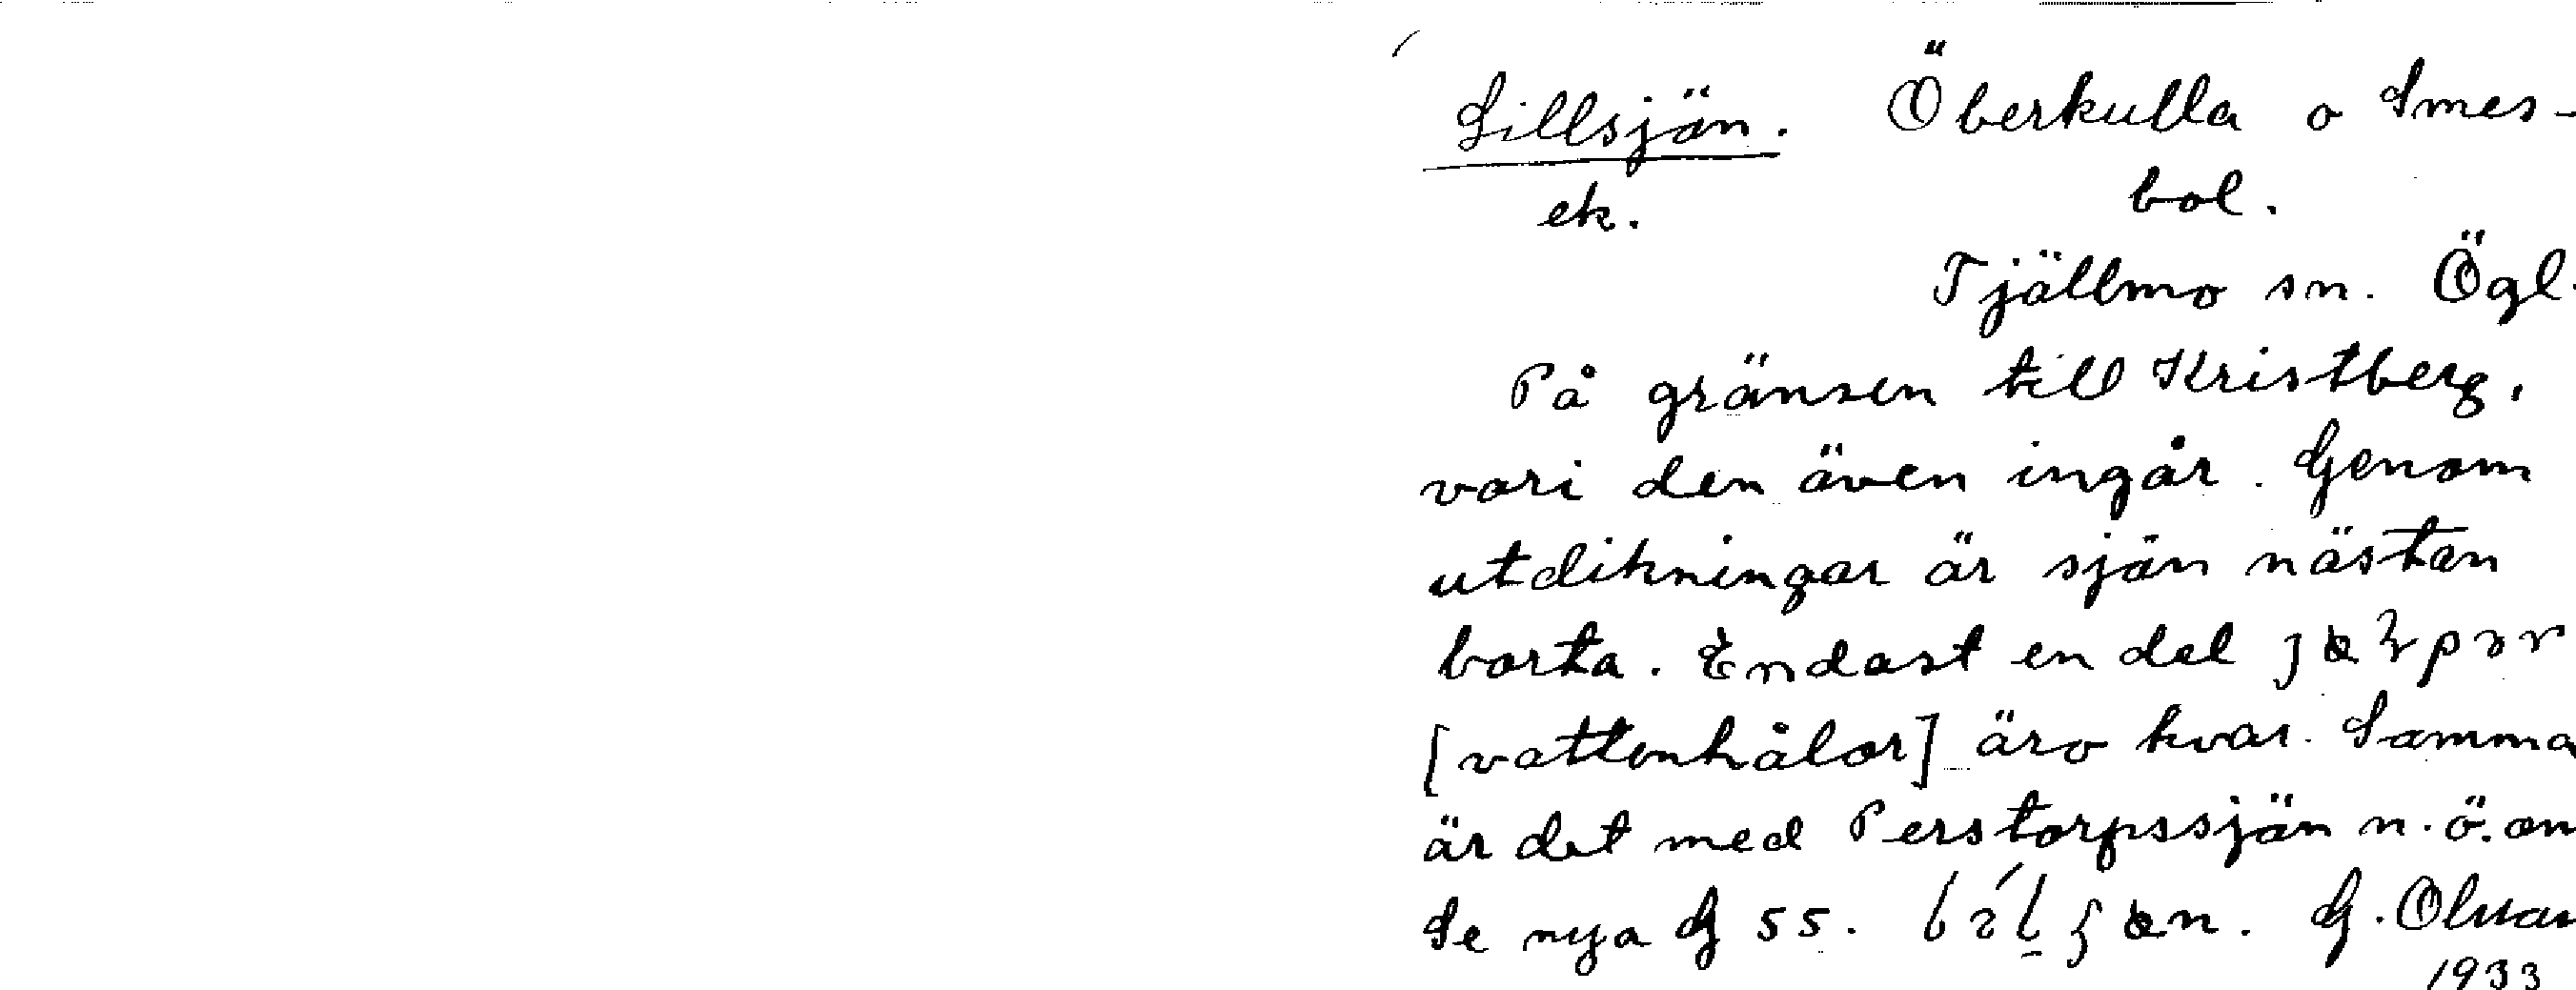 Lillsjön. Överkulla o Smes-
ek. bol.
Tjällmo sn. Ögl.
På gränsen till Kristberg,
vari den även ingår. Genom
utdikningar är sjön nästan
borta. Endast en del
[vattenhålor] äro kvar. Samma
är det med Perstorpssjön n.ö. om
Se nya G 55. G. Olsson
1933